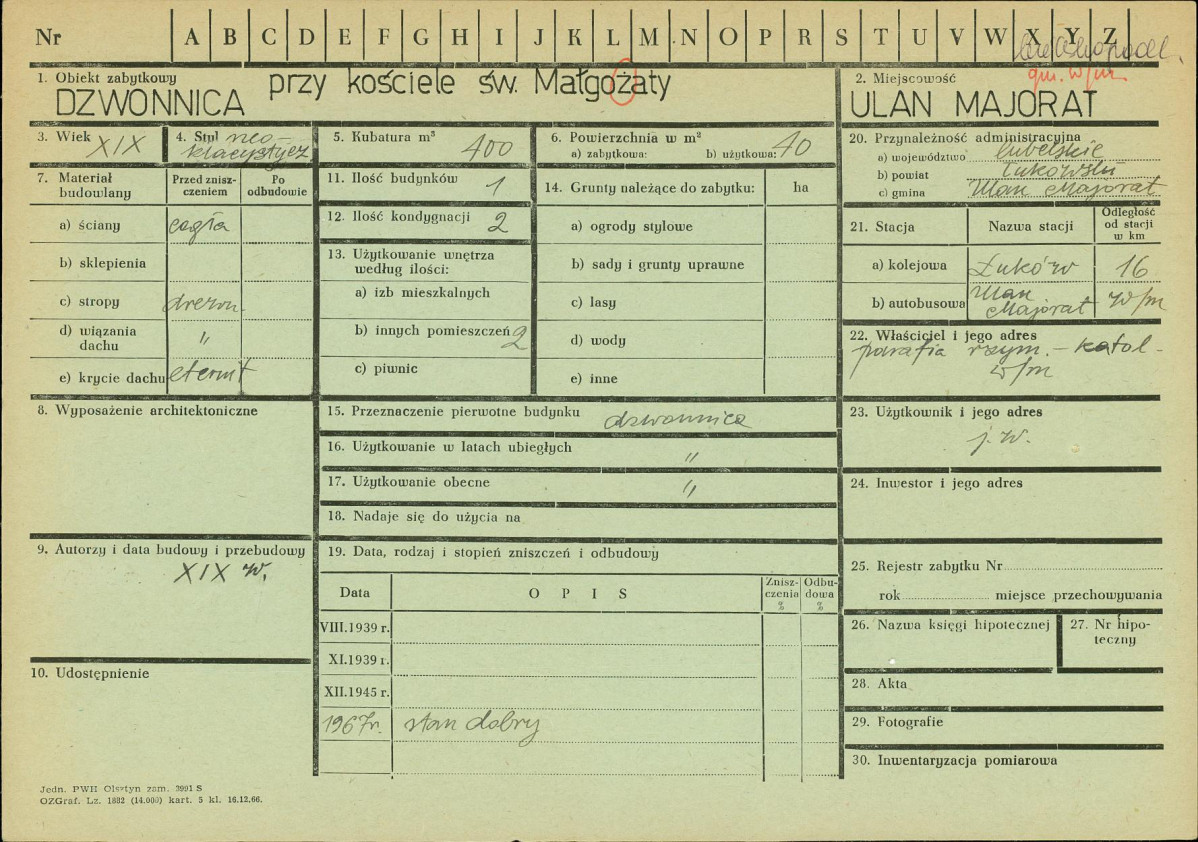 Nr A B C D E F G H I J K L M N O P R S T U V W X Y Z
gm. w/m.
1. Obiekt zabytkowy
DZWONNICA przy kościele św. Małgożaty
2. Miejscowość
ULAN MAJORAT
3. Wiek XIX
4. Styl neo-
klacystycz
5. Kubatura m³ 400
6. Powierzchnia w m²
a) zabytkowa: b) użytkowa: 10
20. Przynależność administracyjna
a) województwo lubelskie
b) powiat Łukowski
c) gmina Ulan Majorat
7. Materiał budowlany
Przed zniszczeniem
Po odbudowie
a) ściany cegła
b) sklepienia
c) stropy drewn.
d) wiązania dachu "
e) krycie dachu eternit
11. Ilość budynków 1
12. Ilość kondygnacji 2
13. Użytkowanie wnętrza
według ilości:
a) izb mieszkalnych
b) innych pomieszczeń 2
c) piwnic
14. Grunty należące do zabytku: ha
a) ogrody stylowe
b) sady i grunty uprawne
c) lasy
d) wody
e) inne
21. Stacja
Nazwa stacji
Odległość od stacji w km
a) kolejowa Łuków 16
b) autobusowa Ulan Majorat w/m
22. Właściciel i jego adres
parafia rzym. - katol -
w/m
8. Wyposażenie architektoniczne
15. Przeznaczenie pierwotne budynku dzwonnica
16. Użytkowanie w latach ubiegłych "
17. Użytkowanie obecne "
18. Nadaje się do użycia na
23. Użytkownik i jego adres
j. w.
24. Inwestor i jego adres
9. Autorzy i data budowy i przebudowy
XIX w.
19. Data, rodzaj i stopień zniszczeń i odbudowy
Data
O P I S
Zniszczenia %
Odbudowa %
VIII.1939 r.
XI.1939 r.
XII.1945 r.
1967r. stan dobry
25. Rejestr zabytku Nr
rok miejsce przechowywania
26. Nazwa księgi hipotecznej
27. Nr hipoteczny
10. Udostępnienie
28. Akta
29. Fotografie
30. Inwentaryzacja pomiarowa
Jedn. PWH Olsztyn zam. 3991 S
OZGraf. Lz. 1882 (14.000) kart. 5 kl. 16.12.66.